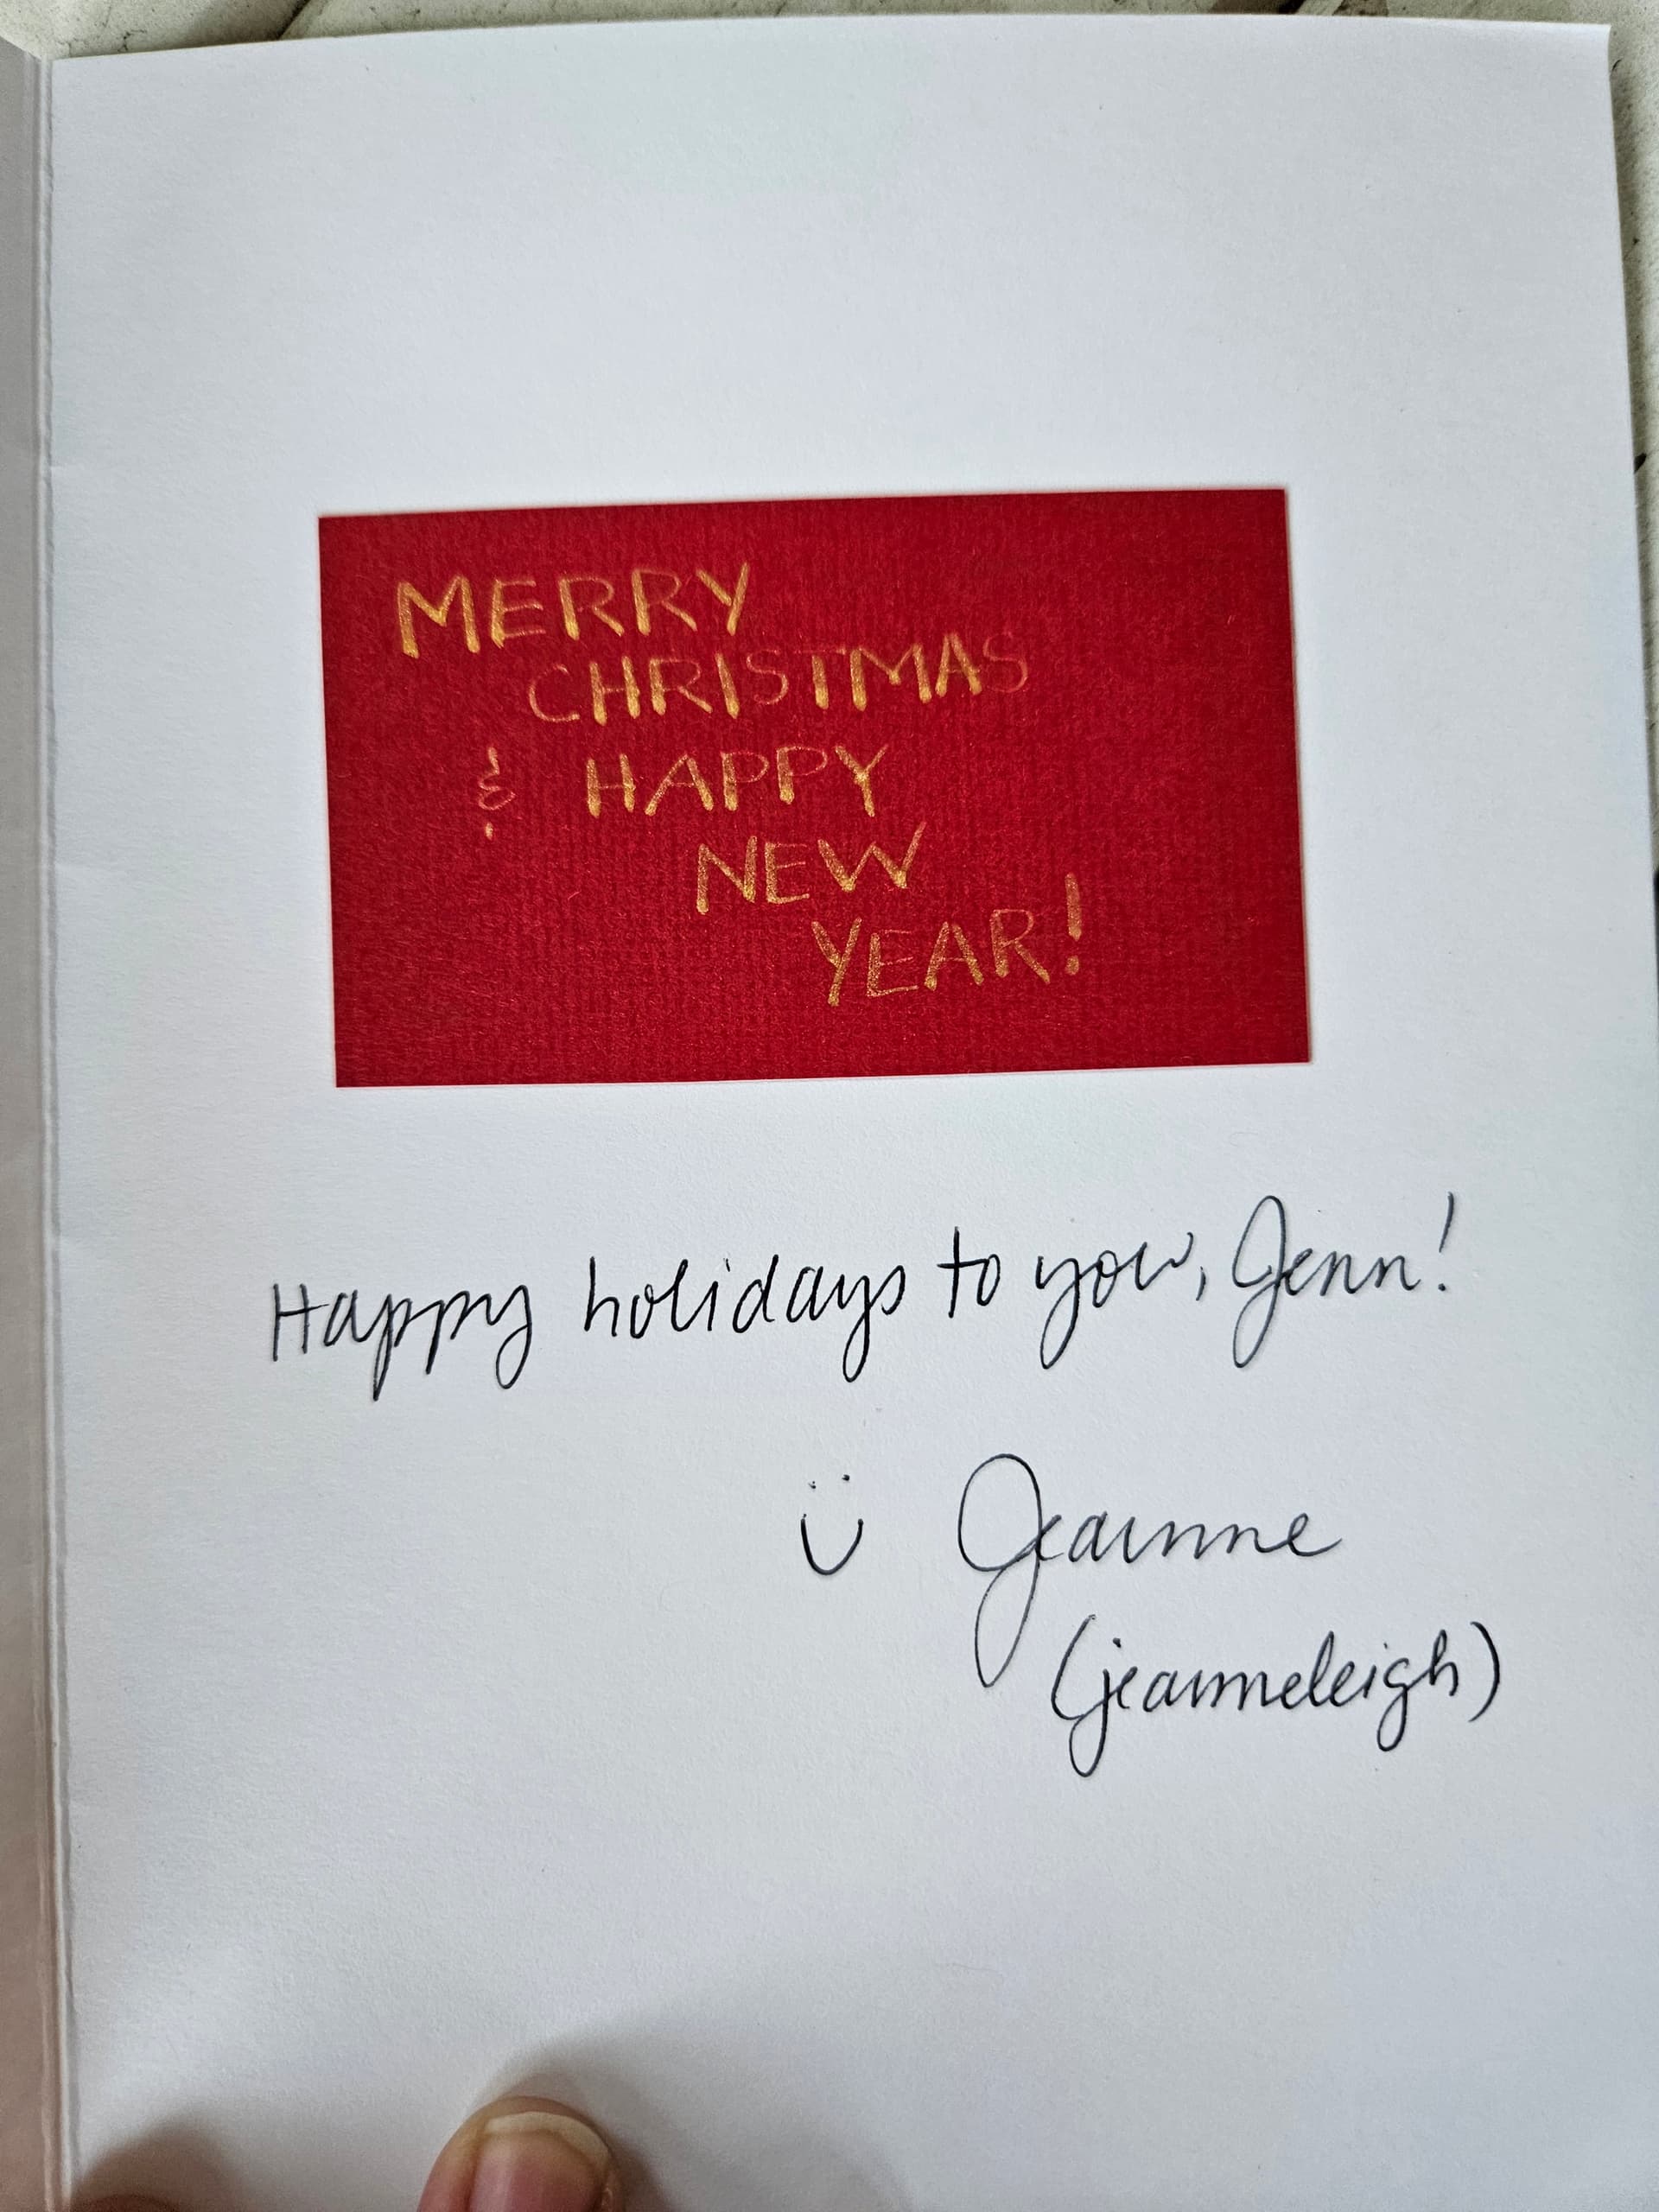 MERRY
CHRISTMAS
& HAPPY
NEW
YEAR!
Happy holidays to you, Jenn!
Jeanne
(jeanneleigh)